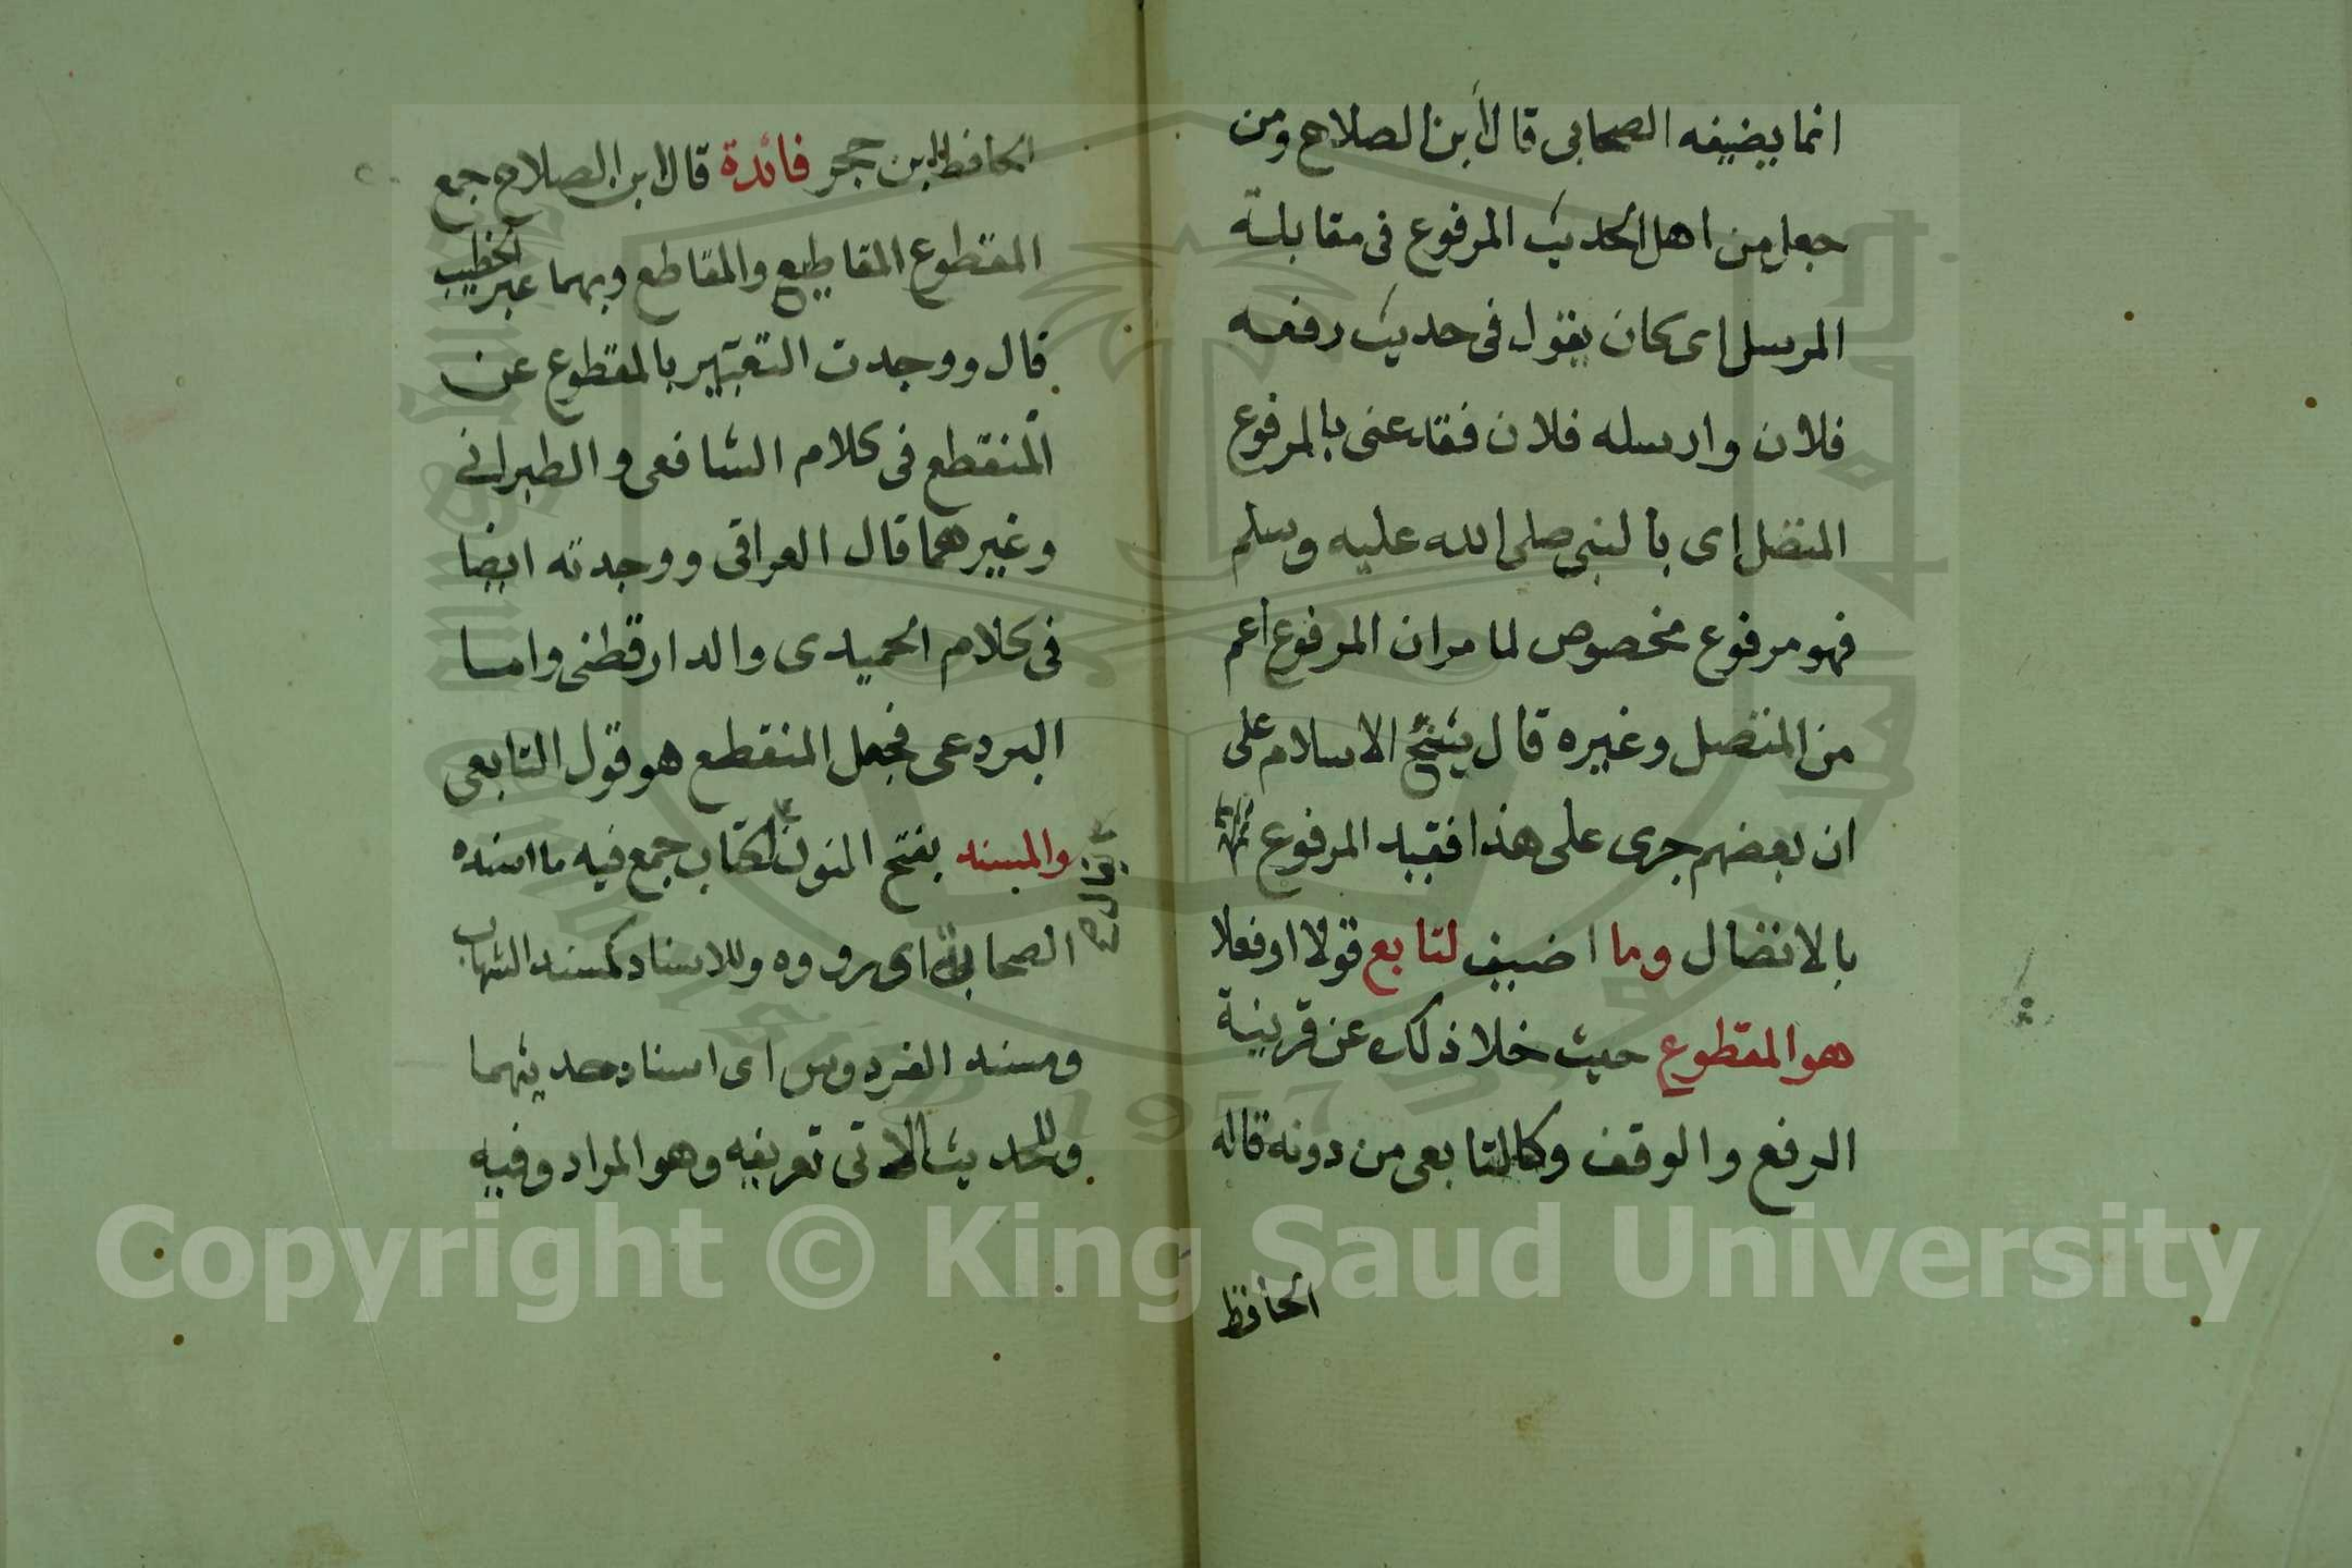 انما يضيفه الصحابى قال ابن الصلاح ومن
جعل من اهل الحديث المرفوع فى مقابلة
المرسل اى كان يقول فى حديث رفعه
فلان وارسله فلان فقد عنى بالمرفوع
المتصل اى بالنبى صلى الله عليه وسلم
فهو مرفوع مخصوص لما مر ان المرفوع اعم
من المتصل وغيره قال شيخ الاسلام على
ان بعضهم جرى على هذا فقيد المرفوع
بالاتصال وما اضيف لتابع قولا او فعلا
هو المقطوع حيث خلا ذلك عن قرينة
الرفع والوقف وكالتابعى من دونه قاله
الحافظ
الحافظ ابن حجر فائدة قال ابن الصلاح جمع
المقطوع المقاطيع والمقاطع وبهما عبر الخطيب
قال ووجدت التعبير بالمقطوع عن
المنقطع فى كلام الشافعى والطبرانى
وغيرهما قال العراقى ووجدته ايضا
فى كلام الحميدى والدارقطنى واما
البردعى فجعل المنقطع هو قول التابعى
والمسند بفتح النون لكتاب جمع فيه ما اسنده
يقال
الصحابة اى رووه وللاسناد كمسند الشهاب
ومسند الفردوس اى اسناد حديثهما
وللحديث الاتى تعريفه وهو المراد وفيه
Copyright © King Saud University
1957